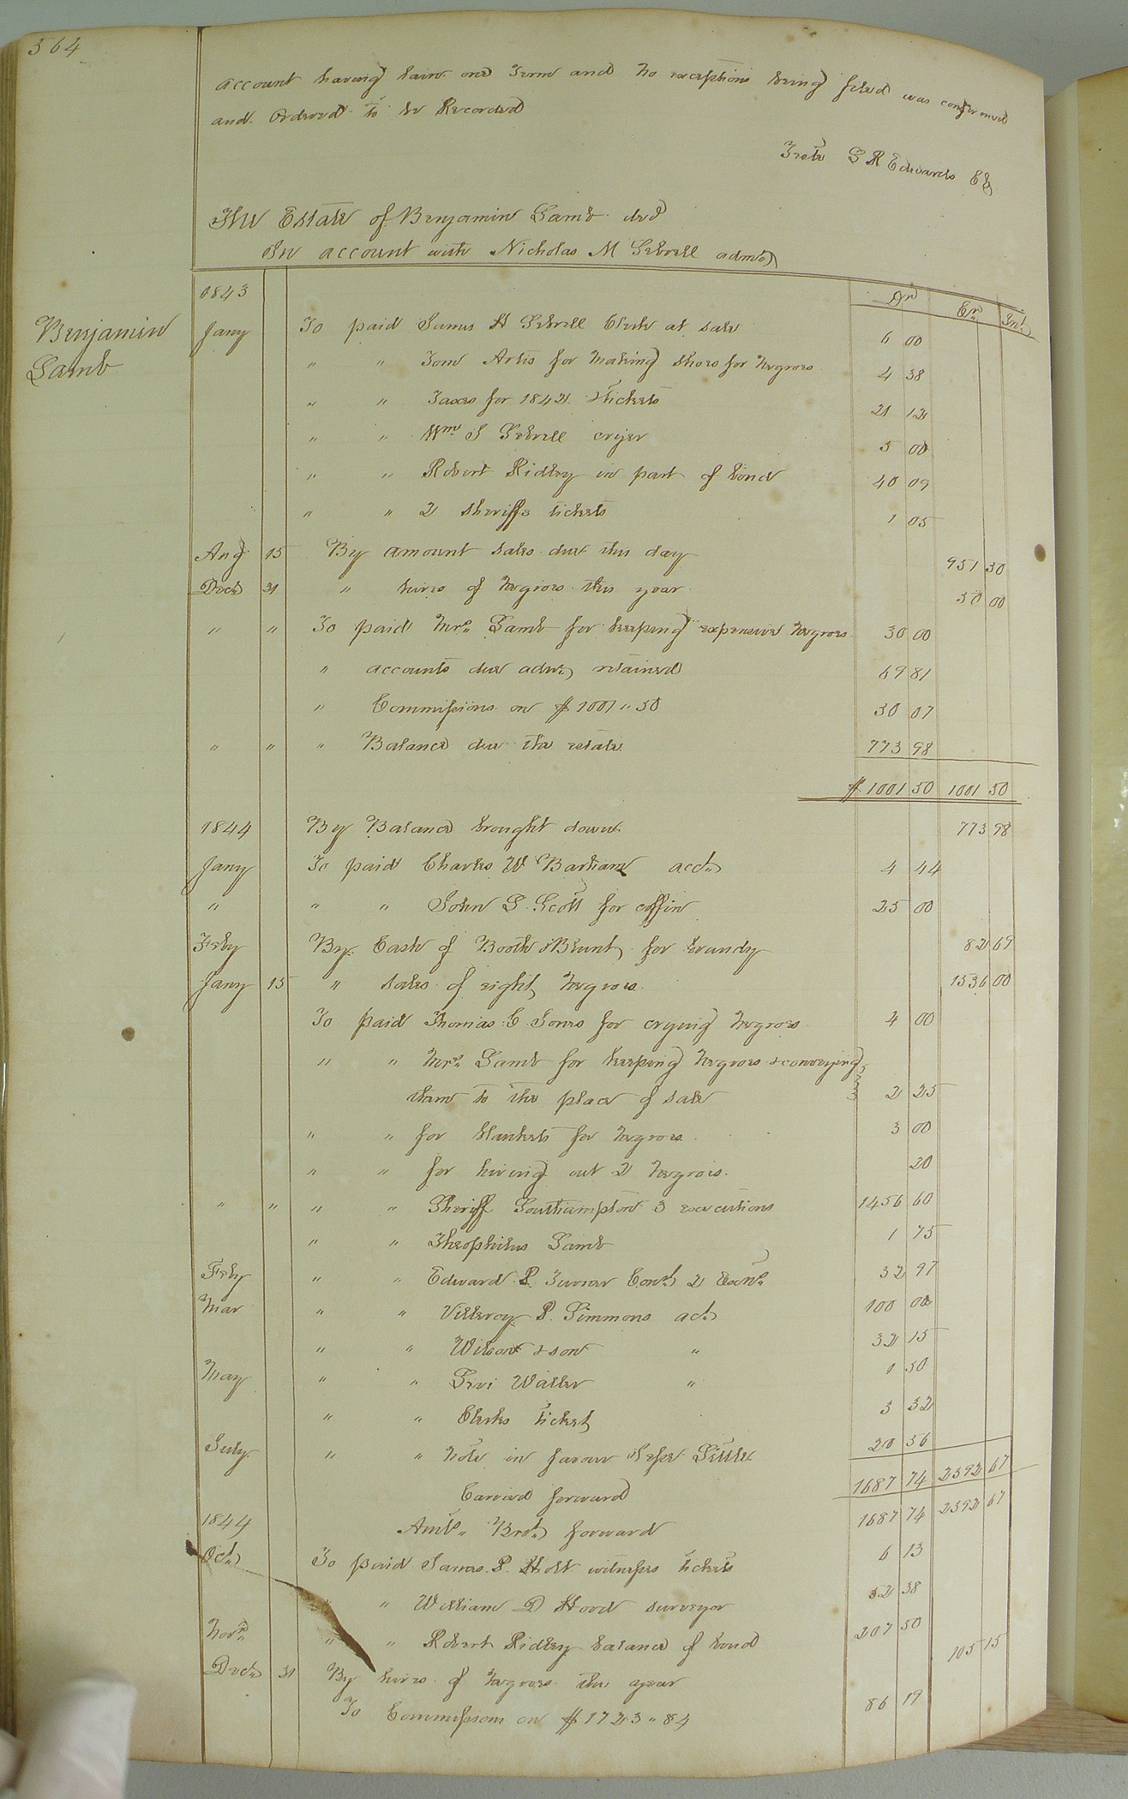 364
account having lain one Term and no exceptions being filed was confirmed
and Ordered to be Recorded
Teste L R Edwards Clk
The Estate of Benjamin Lamb decd
In account with Nicholas M Sebrell admr
Benjamin
Lamb
1843 Dr Cr Int
Jany To paid James H Sebrell Clerk at sale 6 00
" " Tom Artis for making shoes for negroes 4 38
" " Taxes for 1842 & tickets 21 12
" " Wm J Sebrell cryer 5 00
" " Robert Ridley in part of bond 40 09
" " 2 sheriffs tickets 1 05
Aug 15 By amount sales due this day 951 50
Decr 31 " hires of negroes this year 50 00
" " To paid Mrs Lamb for keeping expensive negroes 30 00
" accounts due admr retained 69 81
" Commissions on $1001 " 50 50 07
" " " Balance due the estate 773 98
$1001 50 1001 50
1844 By Balance brought down 773 98
Jany To paid Charles W Barham acct 4 44
" " " John S Scott for coffin 25 00
Feby By Cash of Booth & Blunt for brandy 82 69
Jany 15 " sales of eight negroes 1536 00
To paid Thomas C Jones for crying negroes 4 00
" " Mrs Lamb for keeping negroes & conveying
them to the place of sale 2 25
" " for blankets for negroes 3 00
" " for hiring out 2 negroes 20
" " " " Sheriff Southampton 3 executions 1456 60
" " Theophilus Lamb 1 75
Feby " " Edward P. Turner Const 2 Exns 32 97
Mar " " Villeroy P. Simmons act 100 00
" " Wilson & son " 32 15
May " " Levi Waller " 1 50
" " Clerks ticket 3 32
July " " note in favour Jesse Little 20 56
Carried forward 1687 74 2392 67
1844 Amts Brot forward 1687 74 2392 67
Oct To paid James P. Holt witness tickets 6 13
" " William D Hood surveyor 32 38
Novr " " Robert Ridley balance of bond 207 50
Decr 31 By hires of negroes this year 105 15
To Commissions on $1723 " 84 86 19